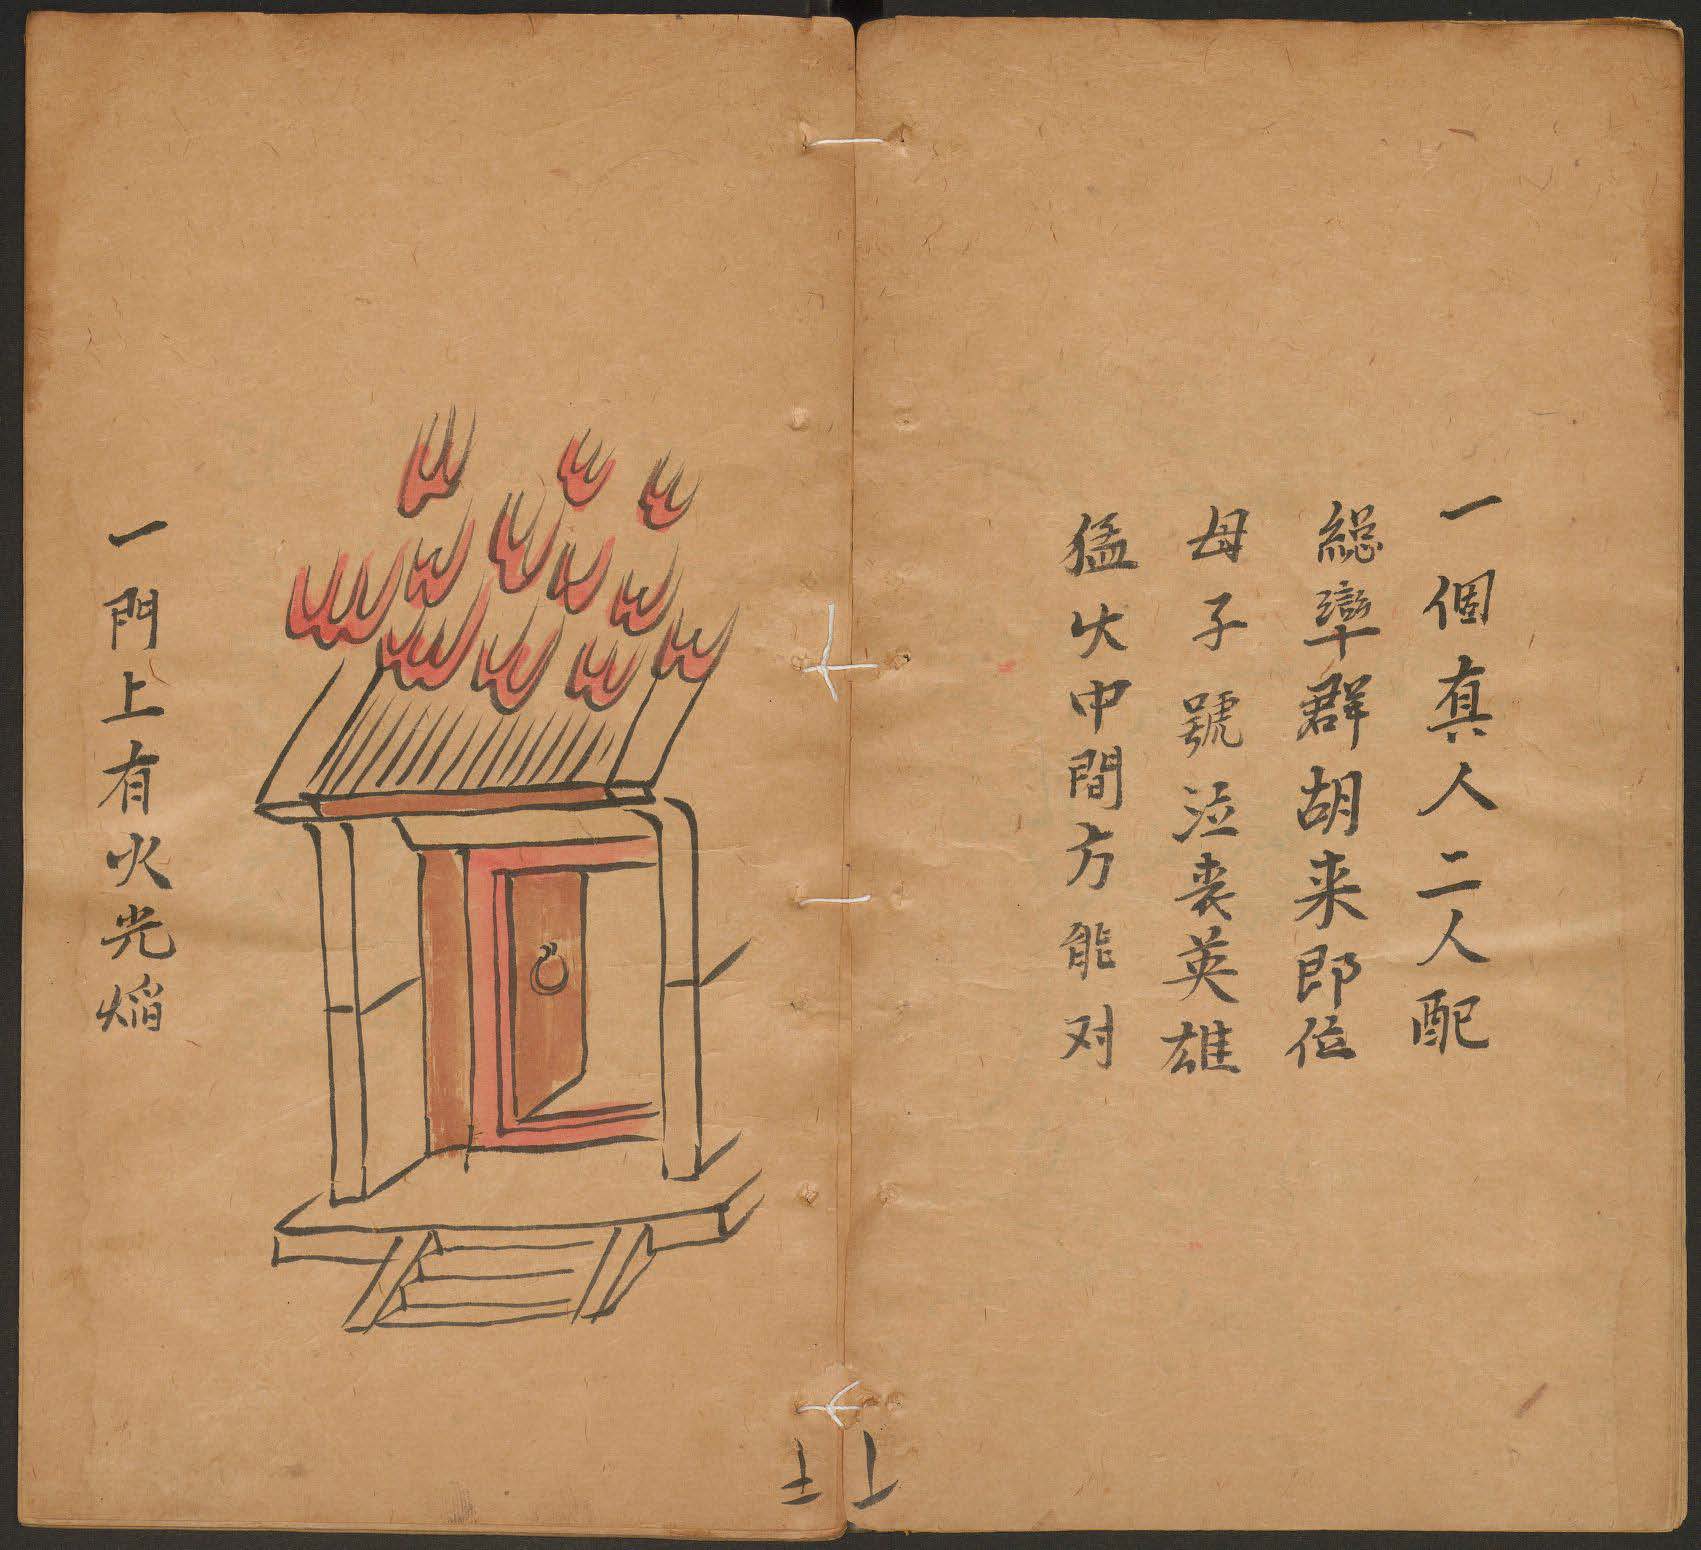 一個真人二人配
緫率群胡来即位
母子號泣丧英雄
猛火中間方能对
一門上有火光焰